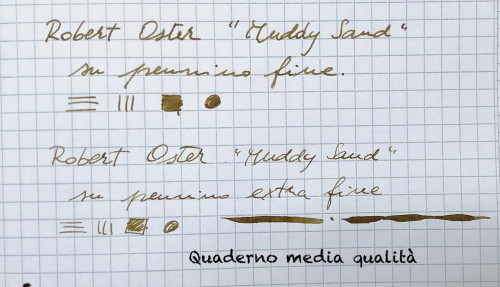 Robert Oster "Muddy Sand"
su pennino fine.
Robert Oster "Muddy Sand"
su pennino extra fine
Quaderno media qualità